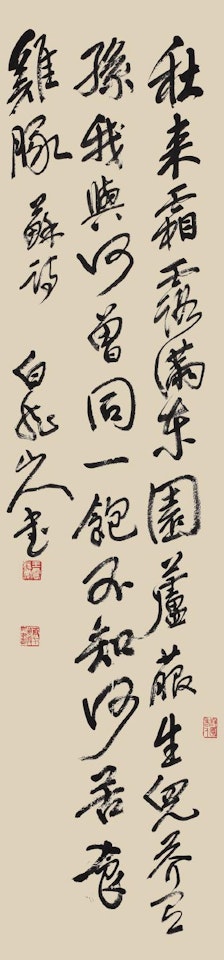 秋来霜露滿東園蘆菔生兒芥有
孫我與何曾同一飽不知何苦食
雞豚 蘇詩 白龍山人書